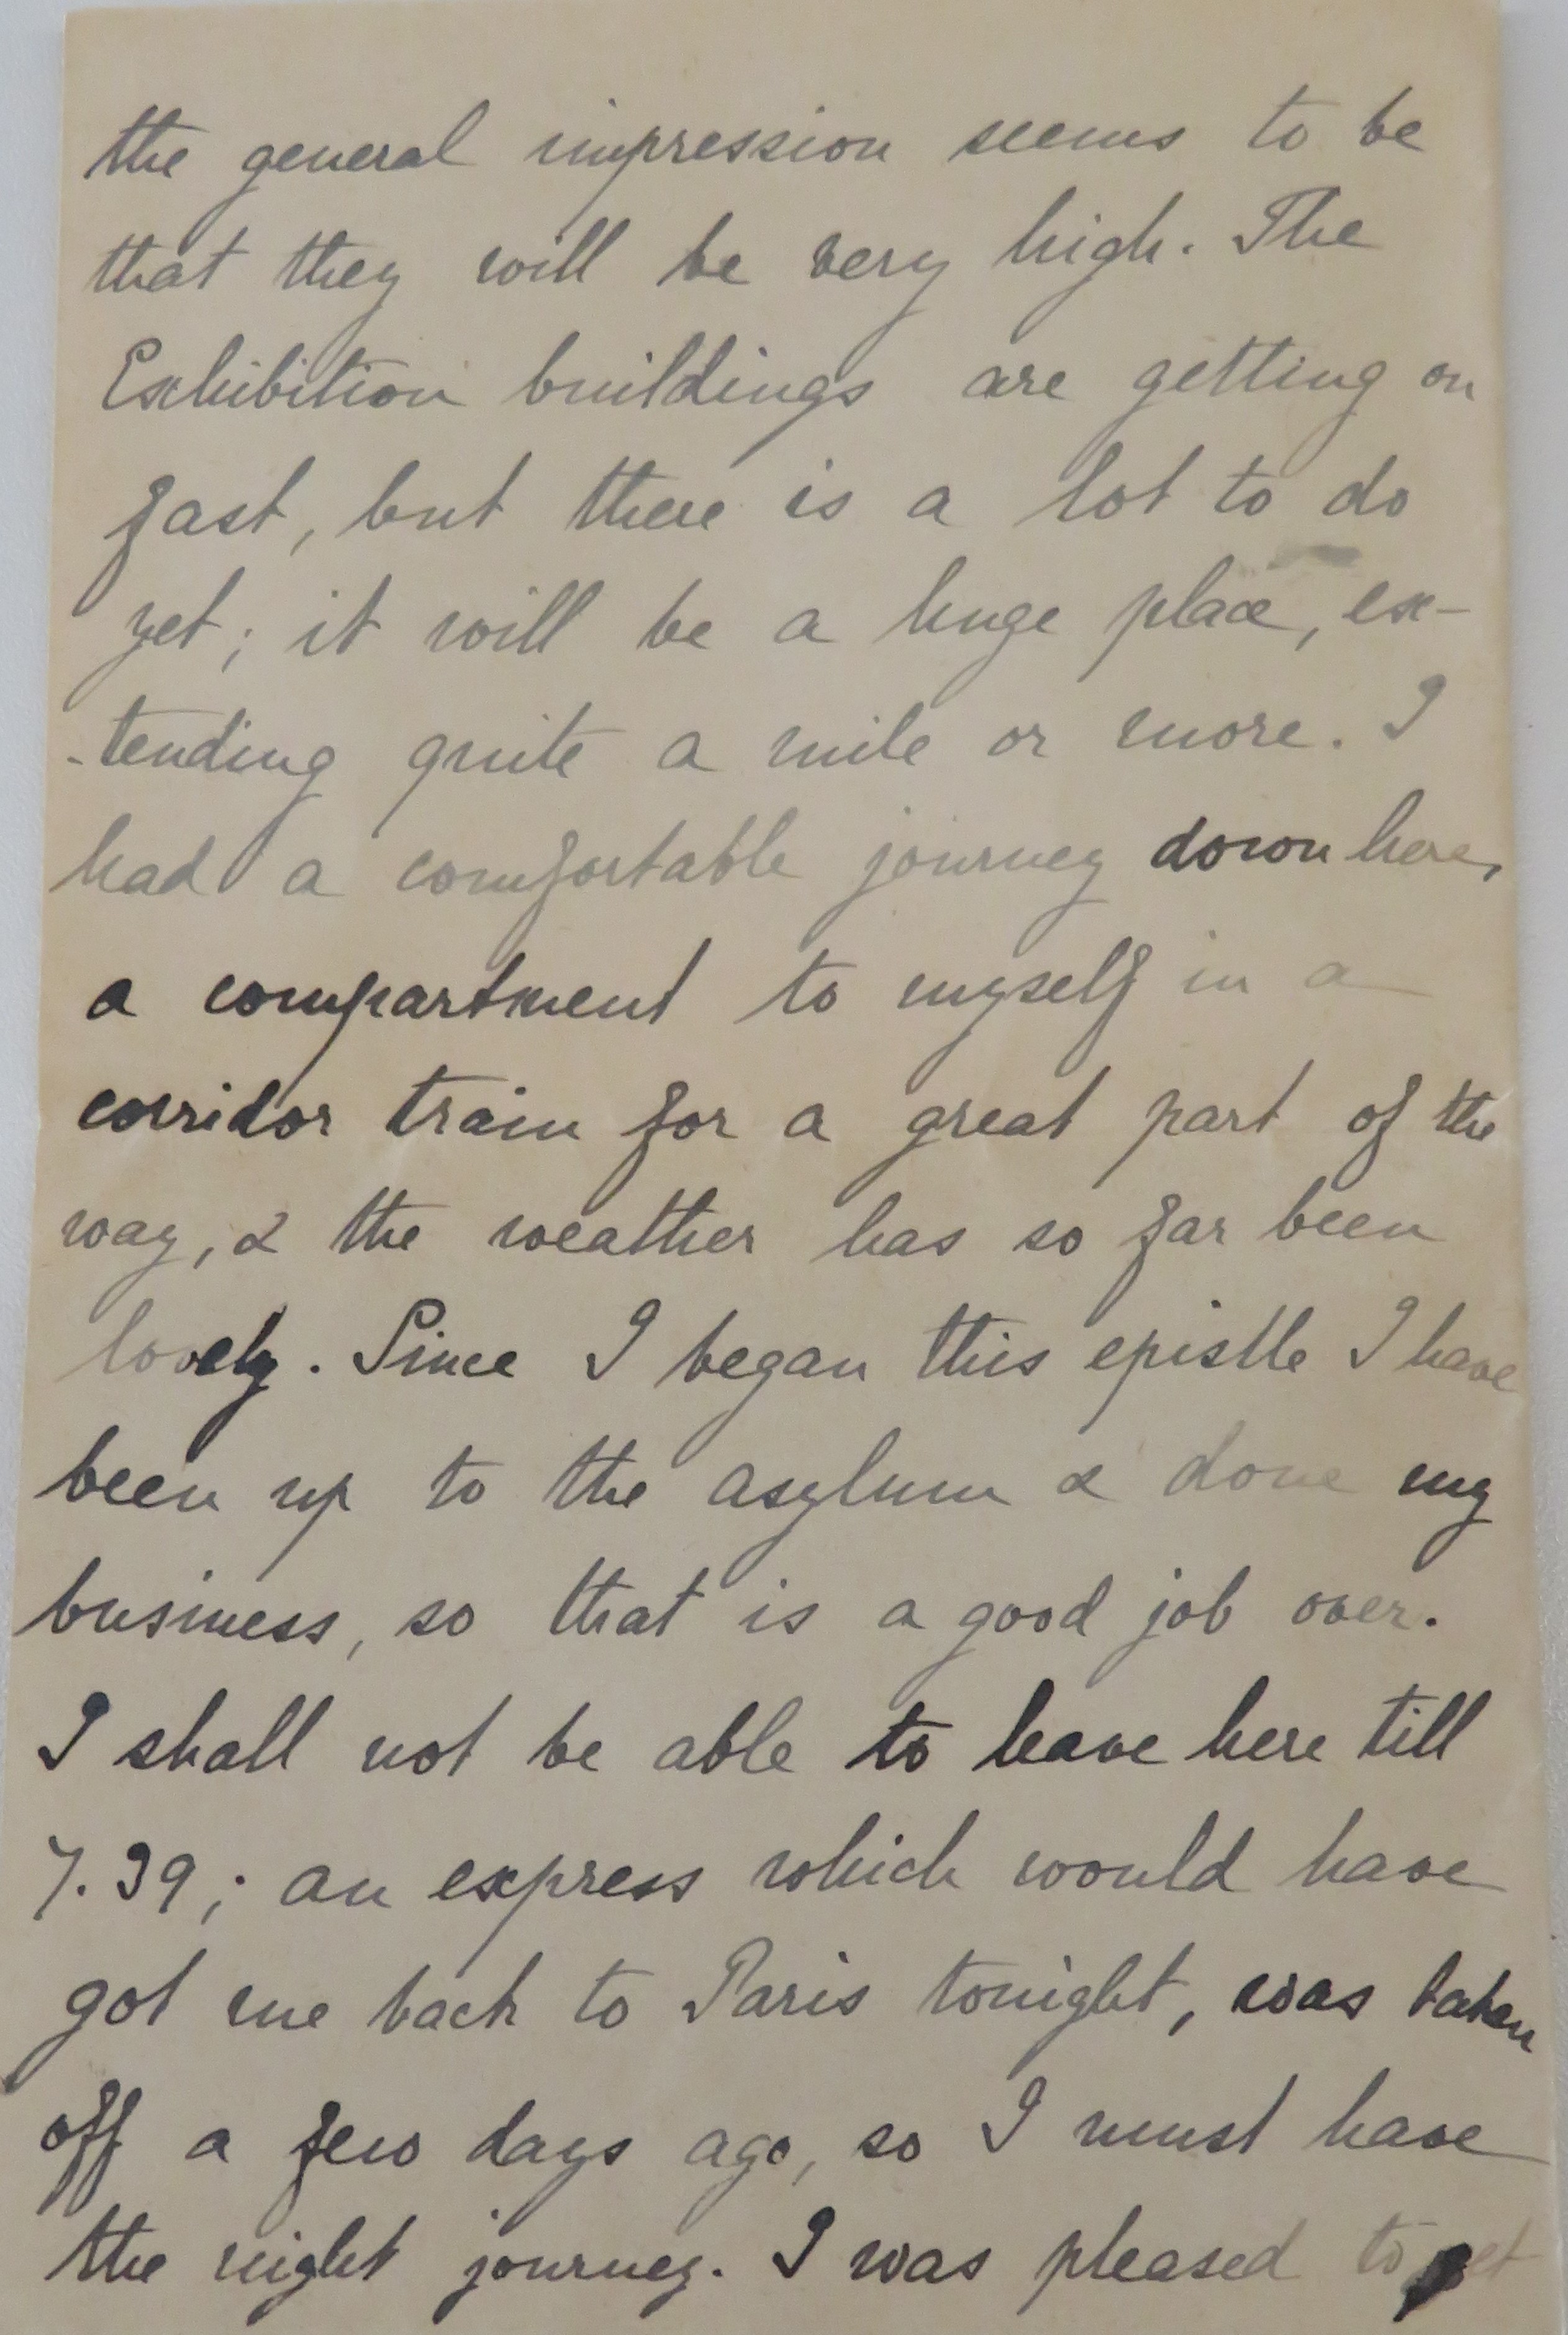 the general impression seems to be
that they will be very high. The
Exhibition buildings are getting on
fast, but there is a lot to do
yet; it will be a huge place, ex-
-tending quite a mile or more. I
had a comfortable journey down here,
a compartment to myself in a
corridor train for a great part of the
way, & the weather has so far been
lovely. Since I began this epistle I have
been up to the asylum & done my
business, so that is a good job over.
I shall not be able to leave here till
7.39; an express which would have
got me back to Paris tonight, was taken
off a few days ago, so I must have
the night journey. I was pleased to get